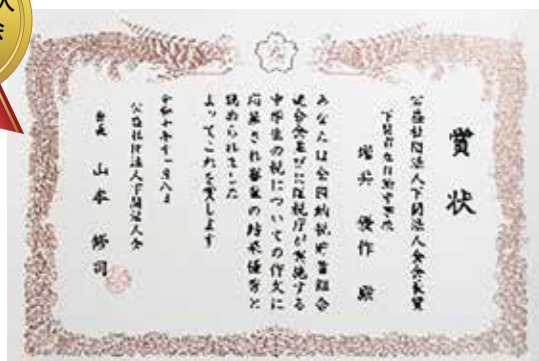 賞状
公益社団法人下関法人会会長賞
増井 優作 殿
あなたは全国納税貯蓄組合
連合会並びに国税庁が実施する
中学生の税についての作文に
応募され審査の結果優秀と
認められました
よってこれを賞します
公益社団法人下関法人会
会長 山本